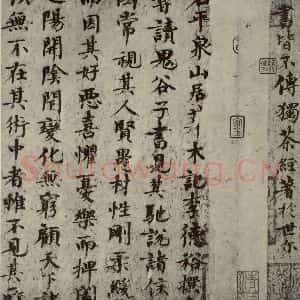 書皆不傳獨茶經著於世尔
右平泉山居草木記李德裕撰
嘗讀鬼谷子書見其馳說諸侯
國常視其人賢愚材性剛柔緩
而因其好惡喜懼憂樂而捭闔
陽開陰閉變化無窮顧天下諸
侯無不在其術中者惟不見其
Shufawang.CN